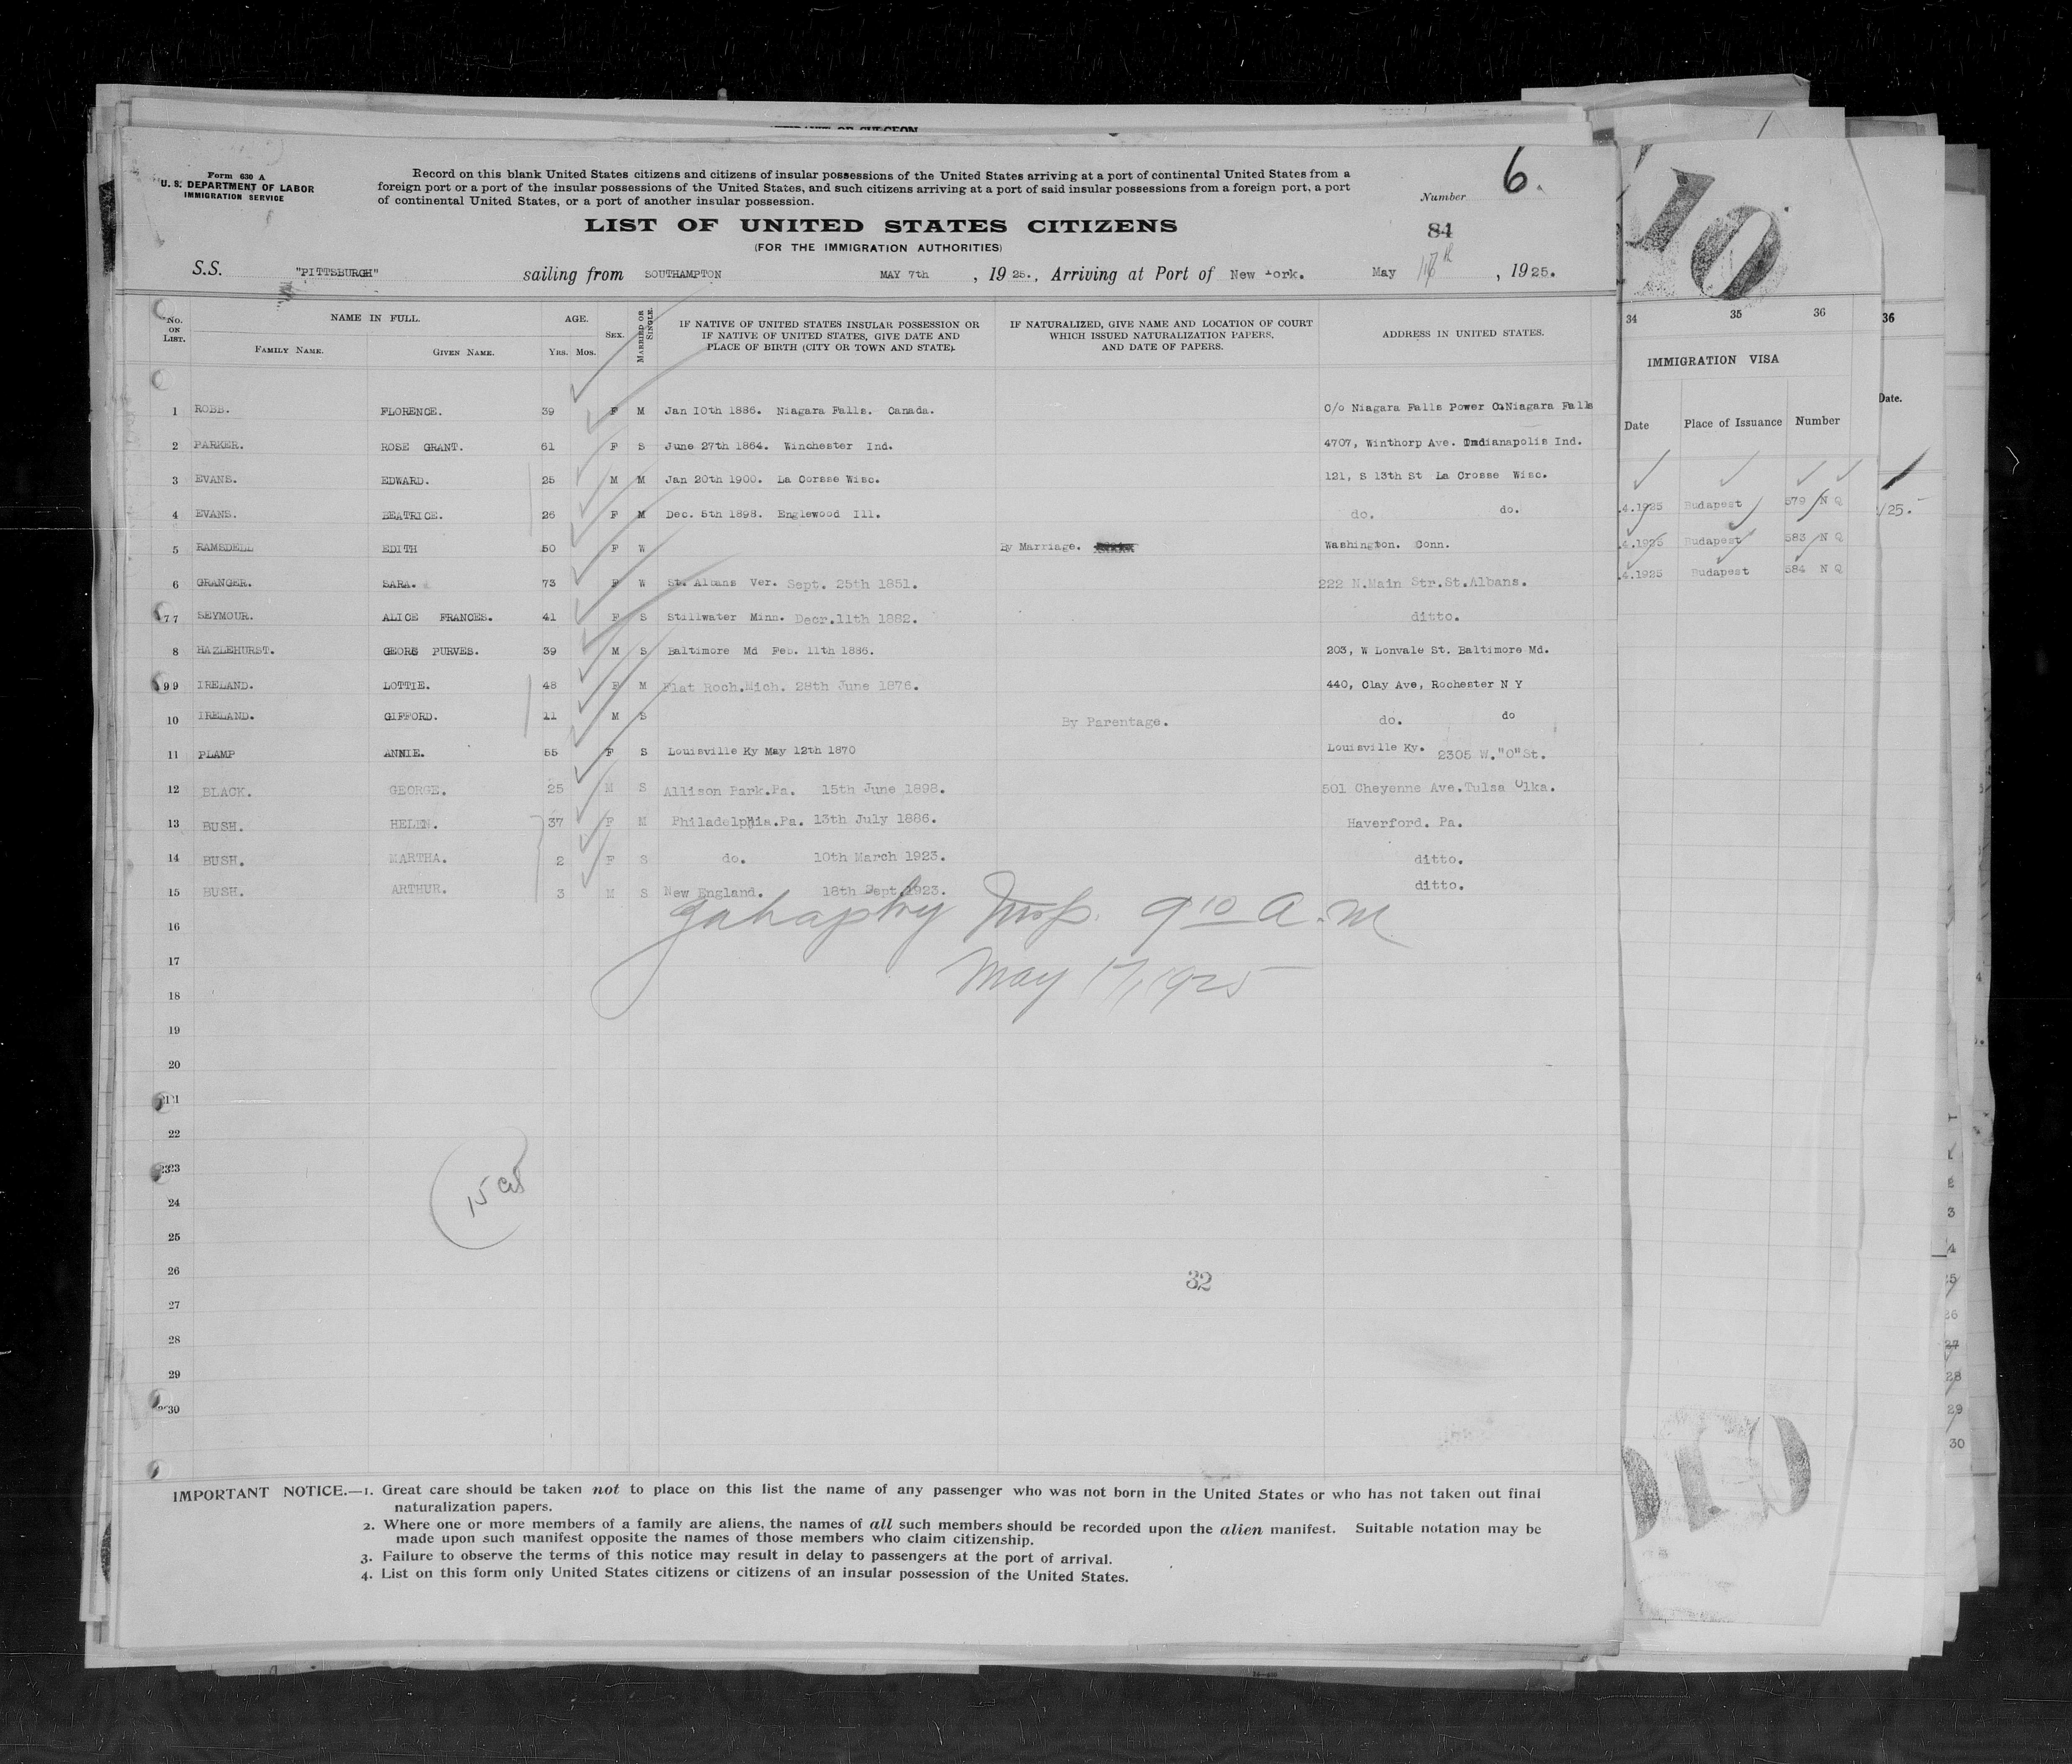 Form 630 A
U. S. DEPARTMENT OF LABOR
IMMIGRATION SERVICE
Record on this blank United States citizens and citizens of insular possessions of the United States arriving at a port of continental United States from a
foreign port or a port of the insular possessions of the United States, and such citizens arriving at a port of said insular possessions from a foreign port, a port
of continental United States, or a port of another insular possession.
Number 6.
LIST OF UNITED STATES CITIZENS
(FOR THE IMMIGRATION AUTHORITIES)
84
S.S. "PITTSBURGH" sailing from SOUTHAMPTON MAY 7th , 19 25., Arriving at Port of New York. May , 1925.
No. ON LIST. NAME IN FULL. FAMILY NAME. GIVEN NAME. AGE. Yrs. Mos. SEX. MARRIED OR SINGLE. IF NATIVE OF UNITED STATES INSULAR POSSESSION OR IF NATIVE OF UNITED STATES, GIVE DATE AND PLACE OF BIRTH (CITY OR TOWN AND STATE). IF NATURALIZED, GIVE NAME AND LOCATION OF COURT WHICH ISSUED NATURALIZATION PAPERS, AND DATE OF PAPERS. ADDRESS IN UNITED STATES.
1 ROBB. FLORENCE. 39 F M Jan 10th 1886. Niagara Falls. Canada. C/o Niagara Falls Power Co Niagara Falls
2 PARKER. ROSE GRANT. 61 F S June 27th 1864. Winchester Ind. 4707, Winthorp Ave. Indianapolis Ind.
3 EVANS. EDWARD. 25 M M Jan 20th 1900. La Corsse Wisc. 121, S 13th St La Crosse Wisc.
4 EVANS. BEATRICE. 26 F M Dec. 5th 1898. Englewood Ill. do. do.
5 RAMSDELL EDITH 50 F W By Marriage. Washington. Conn.
6 GRANGER. SARA. 73 F W St. Albans Ver. Sept. 25th 1851. 222 N.Main Str.St.Albans.
7 7 SEYMOUR. ALICE FRANCES. 41 F S Stillwater Minn. Decr.11th 1882. ditto.
8 HAZLEHURST. GEORG PURVES. 39 M S Baltimore Md Feb. 11th 1886. 203, W Lonvale St. Baltimore Md.
9 9 IRELAND. LOTTIE. 48 F M Flat Roch.Mich. 28th June 1876. 440, Clay Ave, Rochester N Y
10 IRELAND. GIFFORD. 11 M S By Parentage. do. do
11 PLAMP ANNIE. 55 F S Louisville Ky May 12th 1870 Louisville Ky. 2305 W."O"St.
12 BLACK. GEORGE. 25 M S Allison Park.Pa. 15th June 1898. 501 Cheyenne Ave.Tulsa Olka.
13 BUSH. HELEN. 37 F M Philadelphia.Pa. 13th July 1886. Haverford. Pa.
14 BUSH. MARTHA. 2 F S do. 10th March 1923. ditto.
15 BUSH. ARTHUR. 3 M S New England. 18th Sept.1923. ditto.
16 Insp. 9 10 A.M.
17 May 17, 1925
18
19
20
21
22
23
24
25
26
27
28
29
30
15
32
IMPORTANT NOTICE.—1. Great care should be taken not to place on this list the name of any passenger who was not born in the United States or who has not taken out final
naturalization papers.
2. Where one or more members of a family are aliens, the names of all such members should be recorded upon the alien manifest. Suitable notation may be
made upon such manifest opposite the names of those members who claim citizenship.
3. Failure to observe the terms of this notice may result in delay to passengers at the port of arrival.
4. List on this form only United States citizens or citizens of an insular possession of the United States.
10
34 35 36
IMMIGRATION VISA
Date Place of Issuance Number
.4.1925 Budapest 579 N Q
.4.1925 Budapest 583 N Q
.4.1925 Budapest 584 N Q
36
Date.
25.
26
27
28
29
30